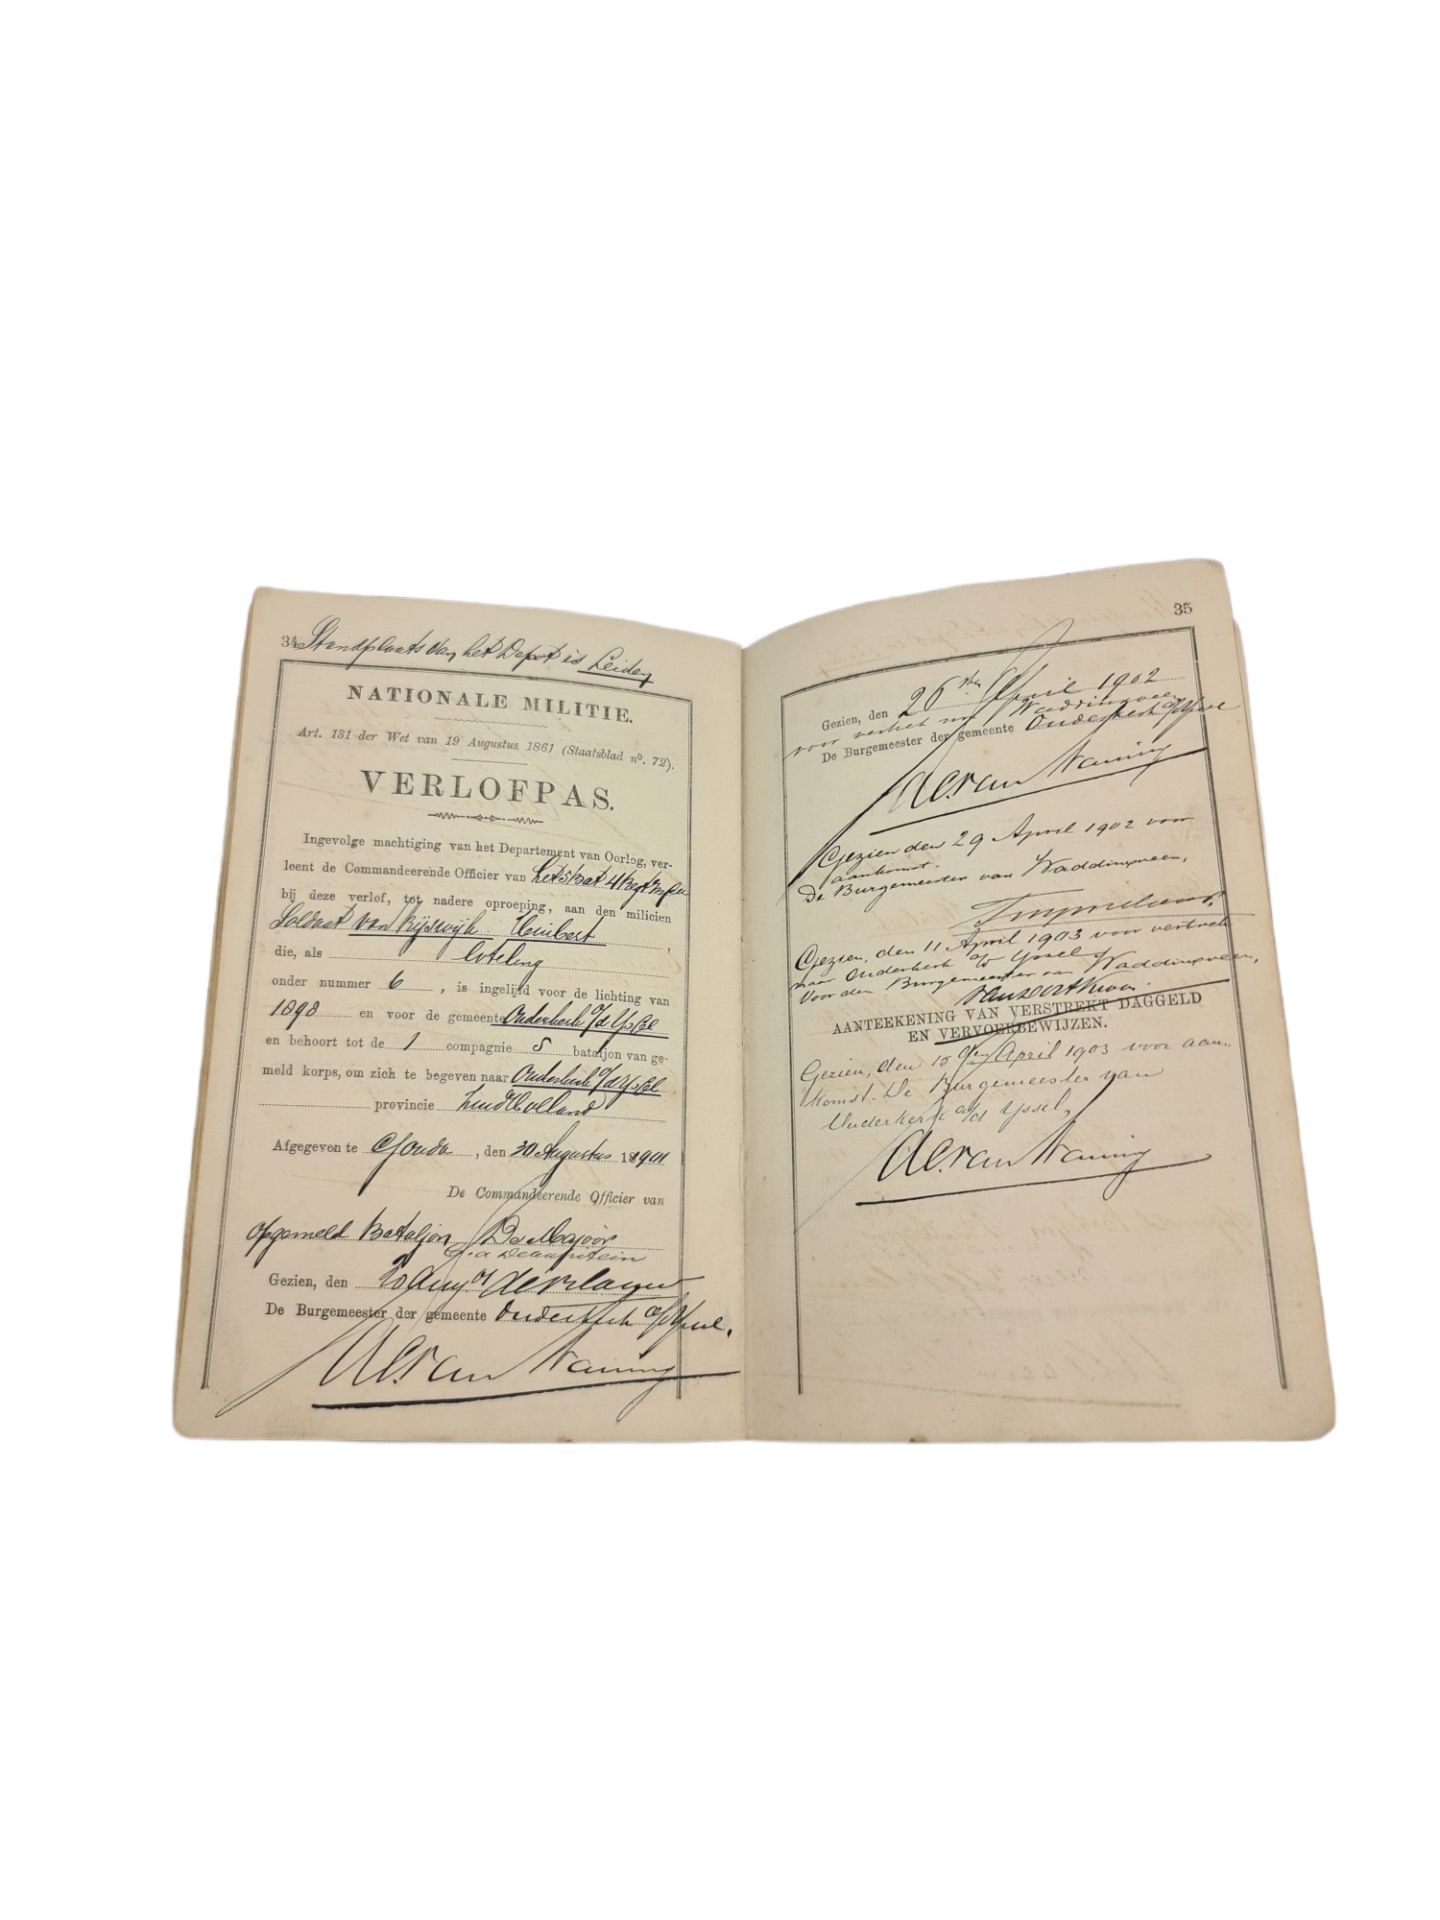 34
Standplaats van het Depot is Leiden
NATIONALE MILITIE.
Art. 131 der Wet van 19 Augustus 1861 (Staatsblad nº. 72).
VERLOFPAS.
Ingevolge machtiging van het Departement van Oorlog, ver-
leent de Commandeerende Officier van het 5 Bat 4 Regt Infie
bij deze verlof, tot nadere oproeping, aan den milicien
Soldaat van Rijswijk Huibert ,
die, als loteling
onder nummer 6 , is ingelijfd voor de lichting van
1898 en voor de gemeente Ouderkerk a/d IJssel
en behoort tot de 1 compagnie 5 bataljon van ge-
meld korps, om zich te begeven naar Ouderkerk a/d IJssel
provincie Zuid Holland
Afgegeven te Gouda , den 30 Augustus 1901
De Commandeerende Officier van
opgemeld Bataljon De Majoor
Gezien, den
De Burgemeester der gemeente Ouderkerk a/d IJssel.
35
Gezien, den 26sten April 1902
voor vertrek naar Waddinxveen
De Burgemeester der gemeente Ouderkerk a/d IJssel
Gezien den 29 April 1902 voor
aankomst.
De Burgemeester van Waddinxveen,
Gezien, den 11 April 1903 voor vertrek
naar Ouderkerk a/d IJssel
Voor den Burgemeester van Waddinxveen,
AANTEEKENING VAN VERSTREKT DAGGELD
EN VERVOERBEWIJZEN.
Gezien, den 15den April 1903 voor aan-
komst. De Burgemeester van
Ouderkerk a/d IJssel,